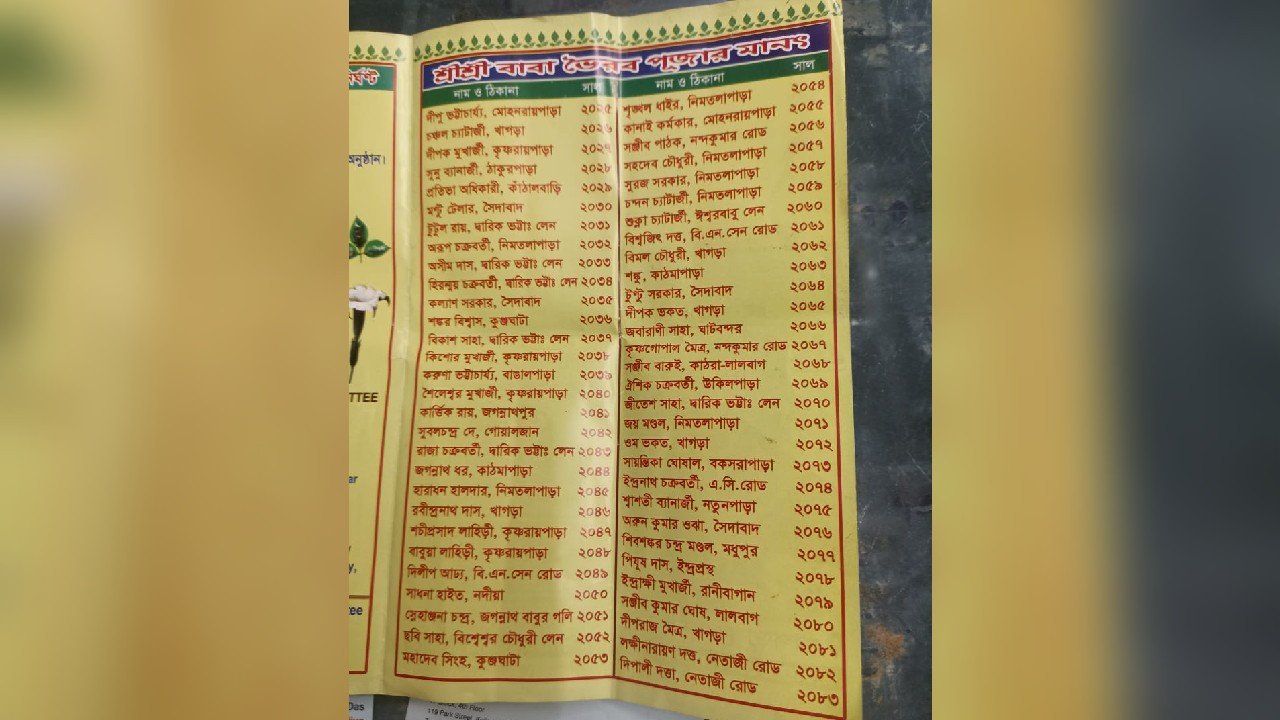 র্ঘণ্ট
অনুষ্ঠান।
TTEE
ar
y,
tee
শ্রীশ্রী বাবা ভৈরব পূজার মানৎ
নাম ও ঠিকানা সাল
দীপু ভট্টাচার্য্য, মোহনরায়পাড়া ২০২৫
চঞ্চল চ্যাটার্জী, খাগড়া ২০২৬
দীপক মুখার্জী, কৃষ্ণরায়পাড়া ২০২৭
সুমু ব্যানার্জী, ঠাকুরপাড়া ২০২৮
প্রতিভা অধিকারী, কাঁঠালবাড়ি ২০২৯
মন্টু টেলার, সৈদাবাদ ২০৩০
টুটুল রায়, দ্বারিক ভট্টাঃ লেন ২০৩১
অরূপ চক্রবর্তী, নিমতলাপাড়া ২০৩২
অসীম দাস, দ্বারিক ভট্টাঃ লেন ২০৩৩
হিরন্ময় চক্রবর্তী, দ্বারিক ভট্টাঃ লেন ২০৩৪
কল্যাণ সরকার, সৈদাবাদ ২০৩৫
শঙ্কর বিশ্বাস, কুঞ্জঘাটা ২০৩৬
বিকাশ সাহা, দ্বারিক ভট্টাঃ লেন ২০৩৭
কিশোর মুখার্জী, কৃষ্ণরায়পাড়া ২০৩৮
করুণা ভট্টাচার্য্য, বাঙালপাড়া ২০৩৯
শৈলেশ্বর মুখার্জী, কৃষ্ণরায়পাড়া ২০৪০
কার্ত্তিক রায়, জগন্নাথপুর ২০৪১
সুবলচন্দ্র দে, গোয়ালজান ২০৪২
রাজা চক্রবর্তী, দ্বারিক ভট্টাঃ লেন ২০৪৩
জগন্নাথ ধর, কাঠমাপাড়া ২০৪৪
হারাধন হালদার, নিমতলাপাড়া ২০৪৫
রবীন্দ্রনাথ দাস, খাগড়া ২০৪৬
শচীপ্রসাদ লাহিড়ী, কৃষ্ণরায়পাড়া ২০৪৭
বাবুয়া লাহিড়ী, কৃষ্ণরায়পাড়া ২০৪৮
দিলীপ আঢ্য, বি.এন.সেন রোড ২০৪৯
সাধনা হাইত, নদীয়া ২০৫০
স্নেহাঞ্জনা চন্দ্র, জগন্নাথ বাবুর গলি ২০৫১
ছবি সাহা, বিশ্বেশ্বর চৌধুরী লেন ২০৫২
মহাদেব সিংহ, কুঞ্জঘাটা ২০৫৩
নাম ও ঠিকানা সাল
শৃজ্জল ধাইর, নিমতলাপাড়া ২০৫৪
কানাই কর্মকার, মোহনরায়পাড়া ২০৫৫
সঞ্জীব পাঠক, নন্দকুমার রোড ২০৫৬
সহদেব চৌধুরী, নিমতলাপাড়া ২০৫৭
সুরজ সরকার, নিমতলাপাড়া ২০৫৮
চন্দন চ্যাটার্জী, নিমতলাপাড়া ২০৫৯
শুক্লা চ্যাটার্জী, ঈশ্বরবাবু লেন ২০৬০
বিশ্বজিৎ দত্ত, বি.এন.সেন রোড ২০৬১
বিমল চৌধুরী, খাগড়া ২০৬২
শঙ্কু, কাঠমাপাড়া ২০৬৩
টুন্টু সরকার, সৈদাবাদ ২০৬৪
দীপক ভকত, খাগড়া ২০৬৫
জবারাণী সাহা, ঘাটবন্দর ২০৬৬
কৃষ্ণগোপাল মৈত্র, নন্দকুমার রোড ২০৬৭
সঞ্জীব বারুই, কাঠরা-লালবাগ ২০৬৮
ঐশিক চক্রবর্তী, উকিলপাড়া ২০৬৯
জীতেশ সাহা, দ্বারিক ভট্টাঃ লেন ২০৭০
জয় মণ্ডল, নিমতলাপাড়া ২০৭১
ওম ভকত, খাগড়া ২০৭২
সায়ন্তিকা ঘোষাল, বকসরাপাড়া ২০৭৩
ইন্দ্রনাথ চক্রবর্তী, এ.সি.রোড ২০৭৪
শ্বাশতী ব্যানার্জী, নতুনপাড়া ২০৭৫
অরুন কুমার ওঝা, সৈদাবাদ ২০৭৬
শিবশঙ্কর চন্দ্র মণ্ডল, মধুপুর ২০৭৭
পিযূষ দাস, ইন্দ্রপ্রস্থ ২০৭৮
ইন্দ্রাক্ষী মুখার্জী, রানীবাগান ২০৭৯
সঞ্জীব কুমার ঘোষ, লালবাগ ২০৮০
দীপরাজ মৈত্র, খাগড়া ২০৮১
লক্ষ্মীনারায়ণ দত্ত, নেতাজী রোড ২০৮২
দিপালী দত্তা, নেতাজী রোড ২০৮৩
Das
4th Floor
119 Park Street,